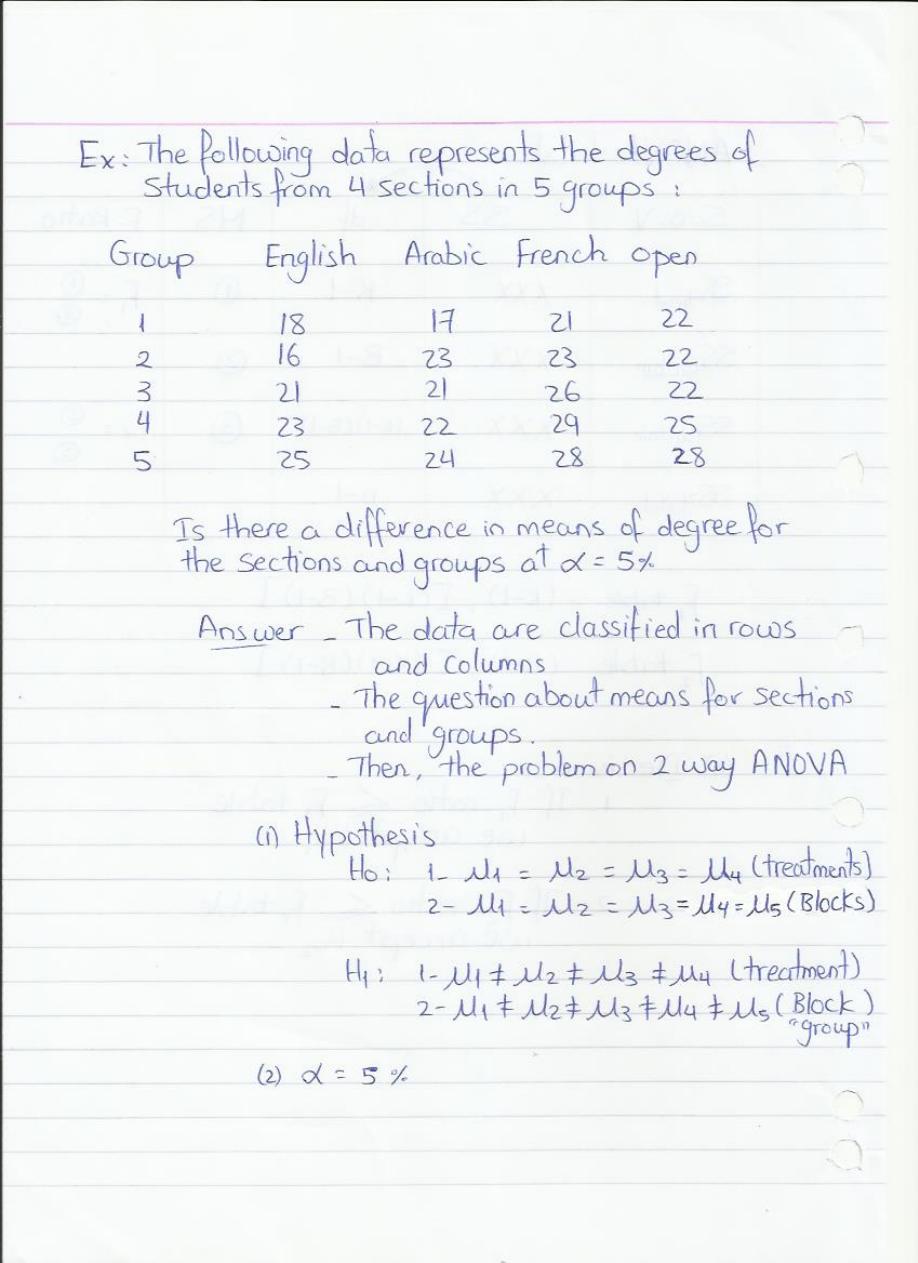 Ex: The following data represents the degrees of
Students from 4 sections in 5 groups :
Group English Arabic French open
1 18 17 21 22
2 16 23 23 22
3 21 21 26 22
4 23 22 29 25
5 25 24 28 28
Is there a difference in means of degree for
the sections and groups at α = 5%
Answer - The data are classified in rows
and columns
- The question about means for sections
and groups.
- Then, the problem on 2 way ANOVA
(1) Hypothesis
Ho: 1- μ1 = μ2 = μ3 = μ4 (treatments)
2- μ1 = μ2 = μ3 = μ4 = μ5 (Blocks)
H1: 1- μ1 ≠ μ2 ≠ μ3 ≠ μ4 (treatment)
2- μ1 ≠ μ2 ≠ μ3 ≠ μ4 ≠ μ5 (Block)
"group"
(2) α = 5 %